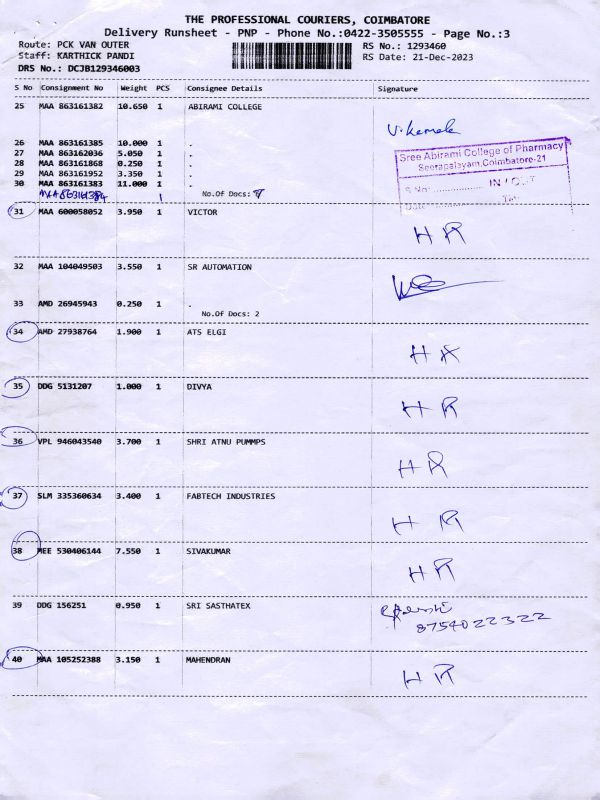 THE PROFESSIONAL COURIERS, COIMBATORE
Delivery Runsheet - PNP - Phone No.:0422-3505555 - Page No.:3
Route: PCK VAN OUTER
RS No.: 1293460
Staff: KARTHICK PANDI
RS Date: 21-Dec-2023
DRS No.: DCJB129346003
S No Consignment No Weight PCS Consignee Details Signature
25 MAA 863161382 10.650 1 ABIRAMI COLLEGE
V. Kamala
26 MAA 863161385 10.000 1 .
27 MAA 863162036 5.050 1 .
28 MAA 863161868 0.250 1 .
29 MAA 863161952 3.350 1 .
30 MAA 863161383 11.000 1 .
MAA 863161384 1 No.Of Docs: 7
Sree Abirami College of Pharmacy
Seerapalayam, Coimbatore-21
S.No: ............... IN / OUT
Date
31 MAA 600058052 3.950 1 VICTOR
H R
32 MAA 104049503 3.550 1 SR AUTOMATION
33 AMD 26945943 0.250 1 .
No.Of Docs: 2
34 AMD 27938764 1.900 1 ATS ELGI
H R
35 DDG 5131207 1.000 1 DIVYA
H R
36 VPL 946043540 3.700 1 SHRI ATNU PUMMPS
H R
37 SLM 335360634 3.400 1 FABTECH INDUSTRIES
H R
38 MEE 530406144 7.550 1 SIVAKUMAR
H R
39 DDG 156251 0.950 1 SRI SASTHATEX
8754022322
40 MAA 105252388 3.150 1 MAHENDRAN
H R